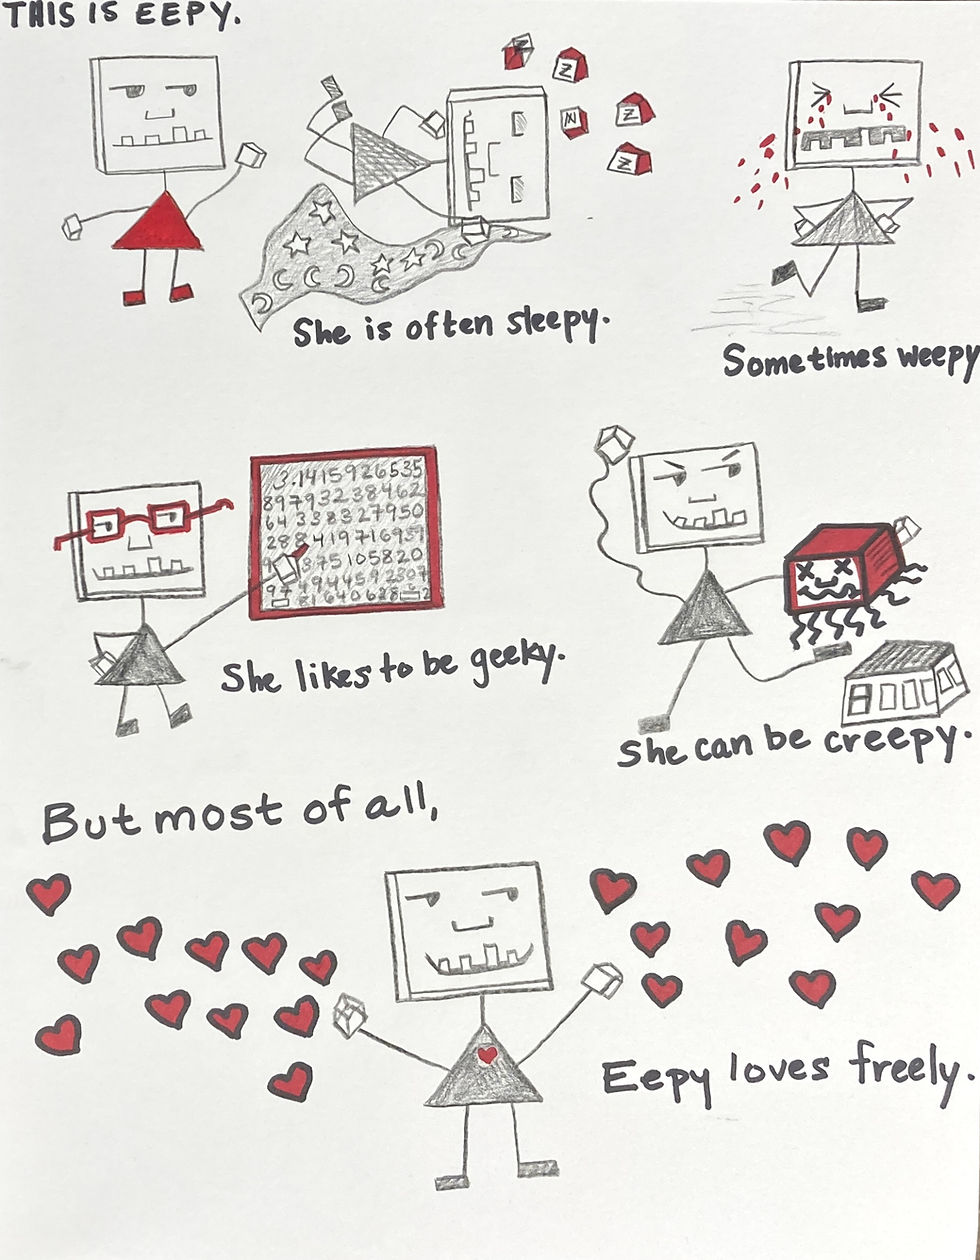 THIS IS EEPY.
Z
Z
Z
Z
Z
She is often sleepy.
Sometimes weepy
3.1415926535
89793238462
64338327950
288
375105820
97 4944592307
81640628 2
She likes to be geeky.
She can be creepy.
But most of all,
Eepy loves freely.